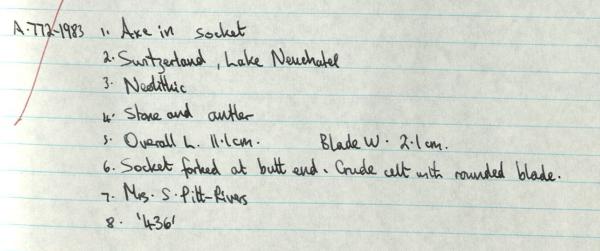 A.772-1983 1. Axe in socket
2. Switzerland, Lake Neuchatel
3. Neolithic
4. Stone and antler
5. Overall L. 11.1cm. Blade W. 2.1cm.
6. Socket forked at butt end. Crude celt with rounded blade.
7. Mrs. S. Pitt-Rivers
8. '436'